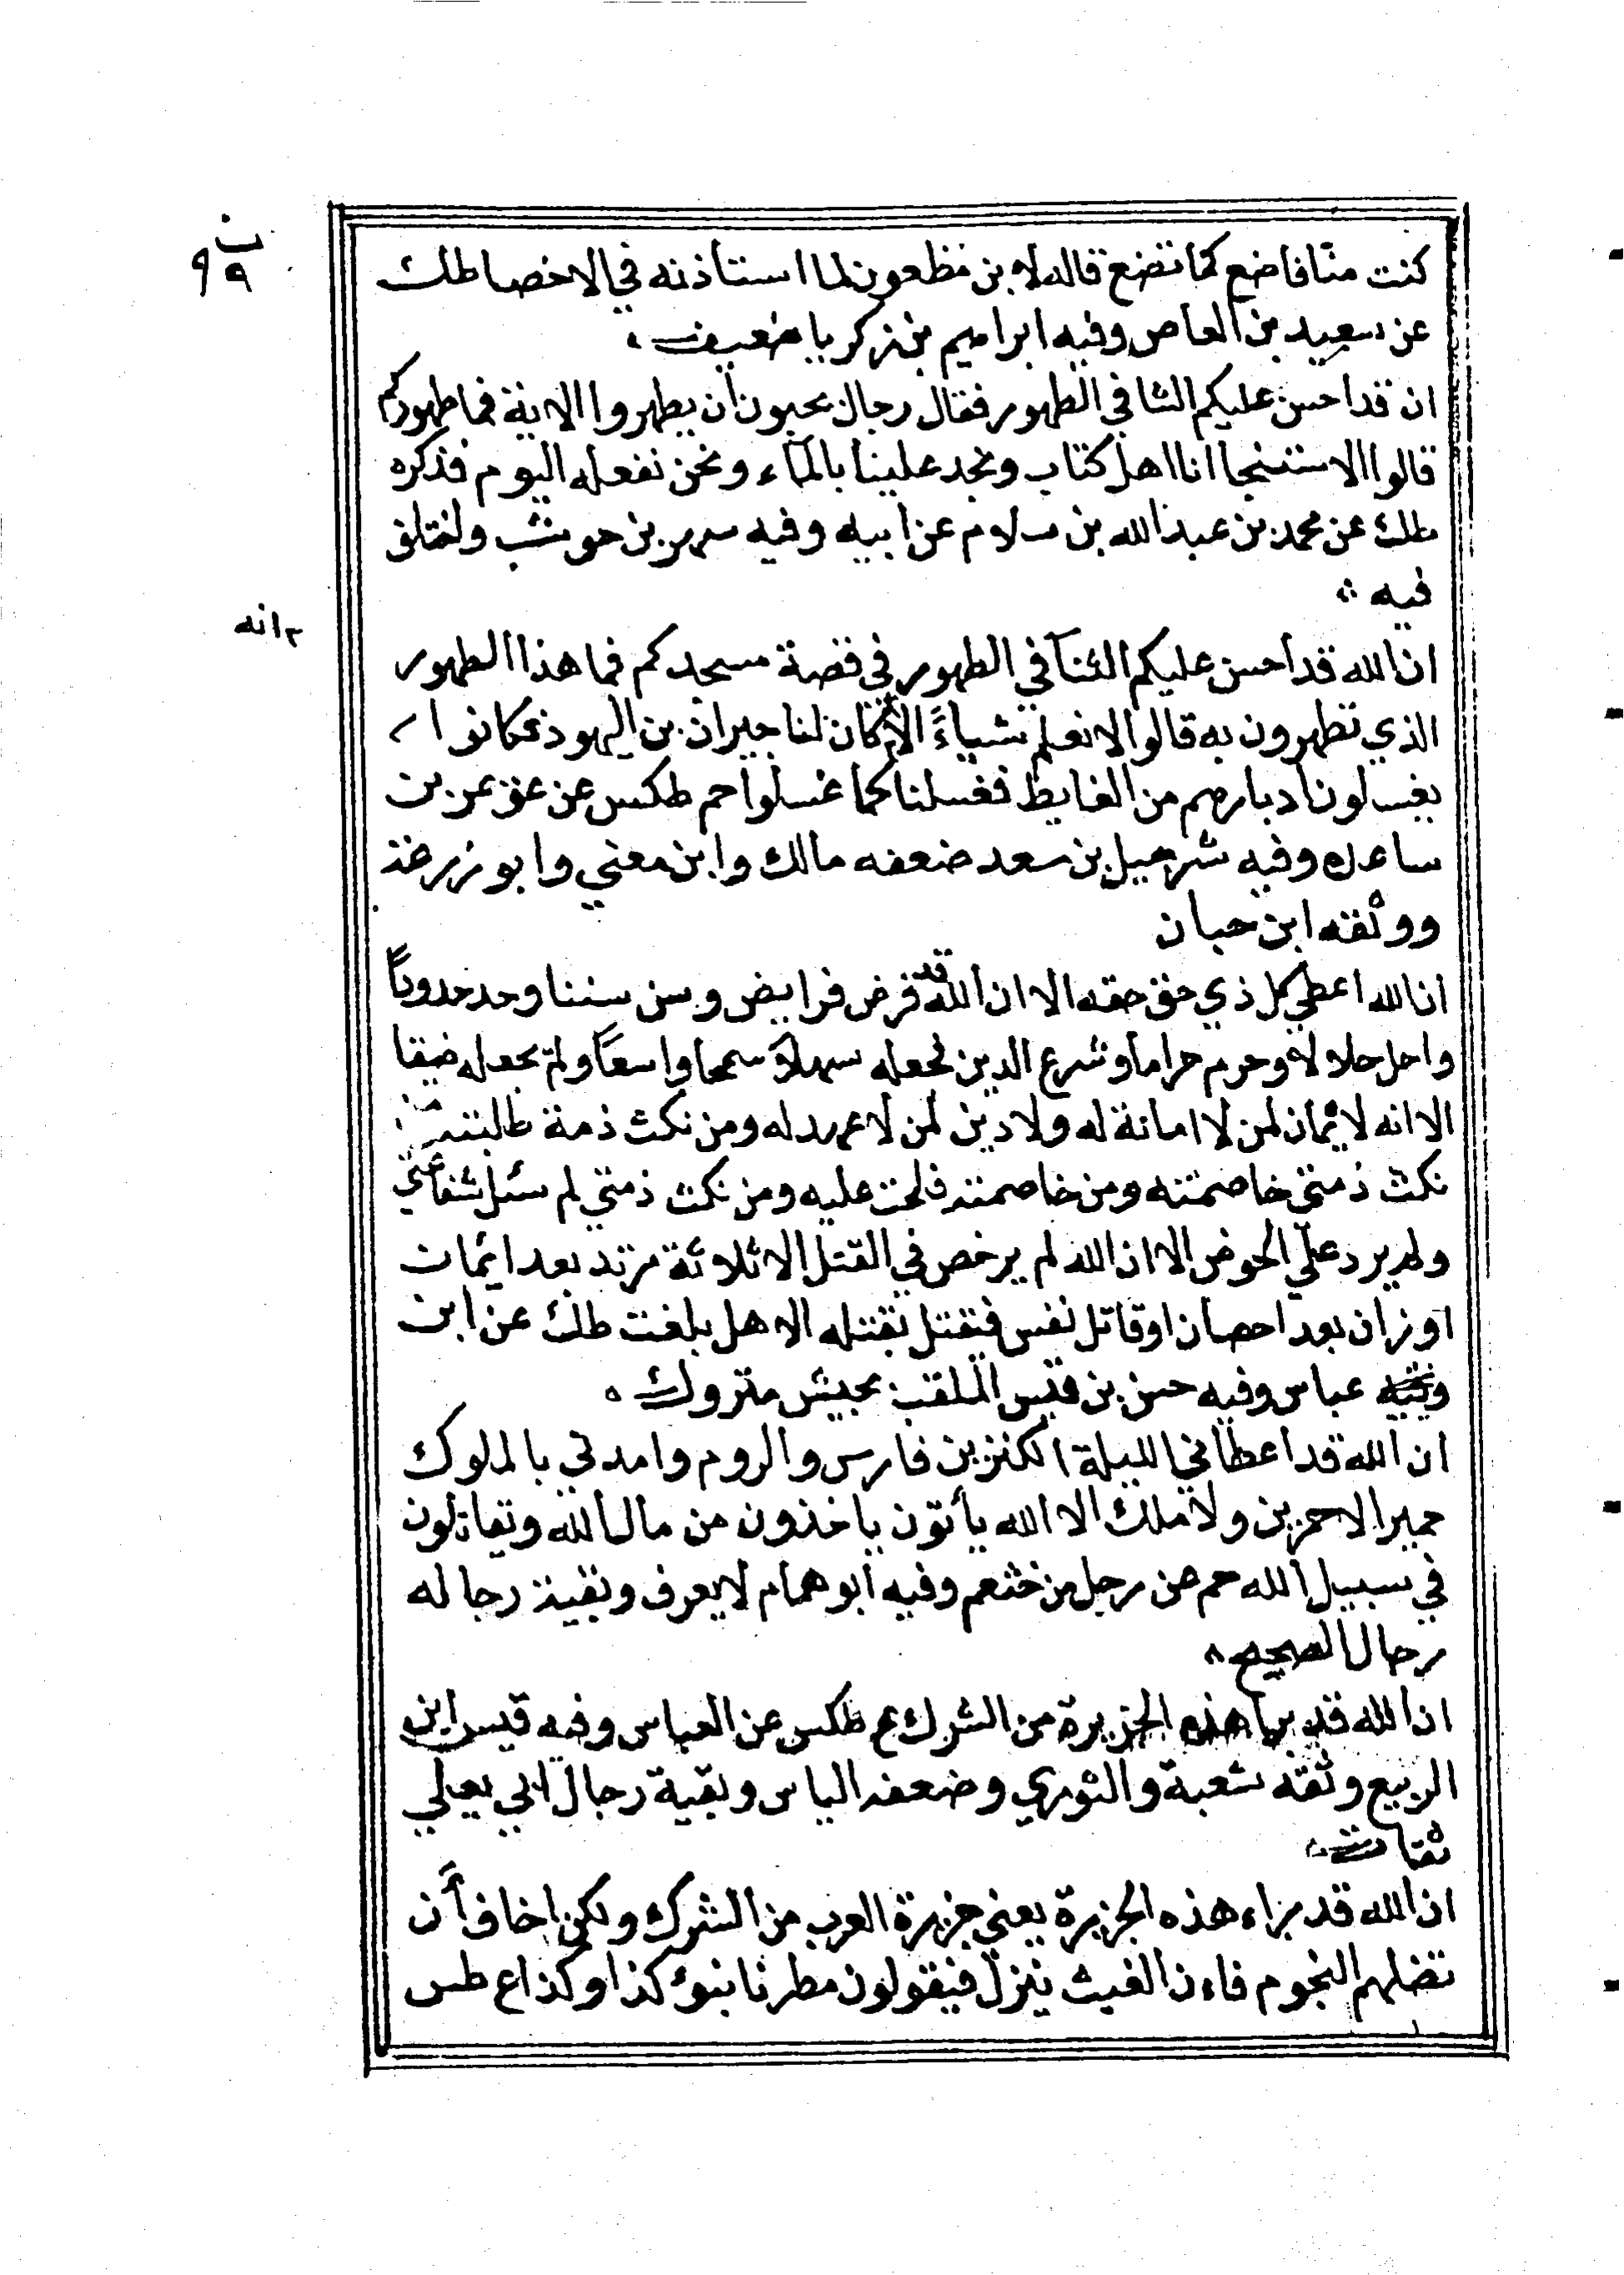 كنت منا فاضع كما تضع قاله لابن مظعون لما استاذنه في الاخصا طك
عن سعيد بن العاص وفيه ابراهيم بن زكريا ضعيف
ان قد احسن عليكم الثنا في الطهور فقال رجال يحبون ان يطهروا الاية فما طهوركم
قالوا الاستنجا انا اهل كتاب ونجد علينا بالماء ونحن نفعله اليوم فذكره
طك عن محمد بن عبد الله بن سلام عن ابيه وفيه شهر بن حوشب واختلف
فيه
ان الله قد احسن عليكم الثنا في الطهور في قصة مسجدكم فما هذا الطهور
الذي تطهرون به قالوا لا نعلم شياءً الا انه كان لنا جيران من اليهود فكانوا
يغسلون ادبارهم من الغايط فغسلنا كما غسلوا حم طكس عن عويمر بن
ساعدة وفيه شرحبيل بن سعد ضعفه مالك وابن معني وابو زرعة
ووثقه ابن حبان
ان الله اعطي كل ذي حق حقه الا ان الله قد فرض فرايض وسن سننا وحد حدوداً
واحل حلالا وحرم حراما وشرع الدين فجعله سهلاً سمحا واسعاً ولم يجعله ضيقا
الا انه لا يمان لمن لا امانة له ولا دين لمن لا عهد له ومن نكث ذمة طلبته ومن
نكث ذمتي خاصمته ومن خاصمته فلحت عليه ومن نكث ذمتي لم سئل شفاعتي
ولم يرد علي الحوض الا ان الله لم يرخص في القتل الا ثلاثة مرتد بعد ايمان
او زان بعد احصان او قاتل نفس فيقتل بقتله الا هل بلغت طك عن ابن
عباس وفيه حسن بن قيس الملقب بحيش متروك
ان الله قد اعطاني الليلة الكنزين فارس والروم وامدني بالملوك
حمير الاحمرين ولا ملك الا الله يأتون ياخذون من مال الله وتقاتلون
في سبيل الله حم عن رجل من خثعم وفيه ابو همام لا يعرف وبقية رجاله
رجال الصحيح
ان الله قد برا هذه الجزيرة من الشرك ع طكس عن العباس وفيه قيس ابن
الربيع وثقه شعبة والثوري وضعفه الناس وبقية رجال ابي يعلي
ثقات
ان الله قد براء هذه الجزيرة يعني جزيرة العرب من الشرك ولكن اخاف أن
تضلهم النجوم فاءن الغيث ينزل فيقولون مطرنا بنوء كذا وكذا ع طس
انه